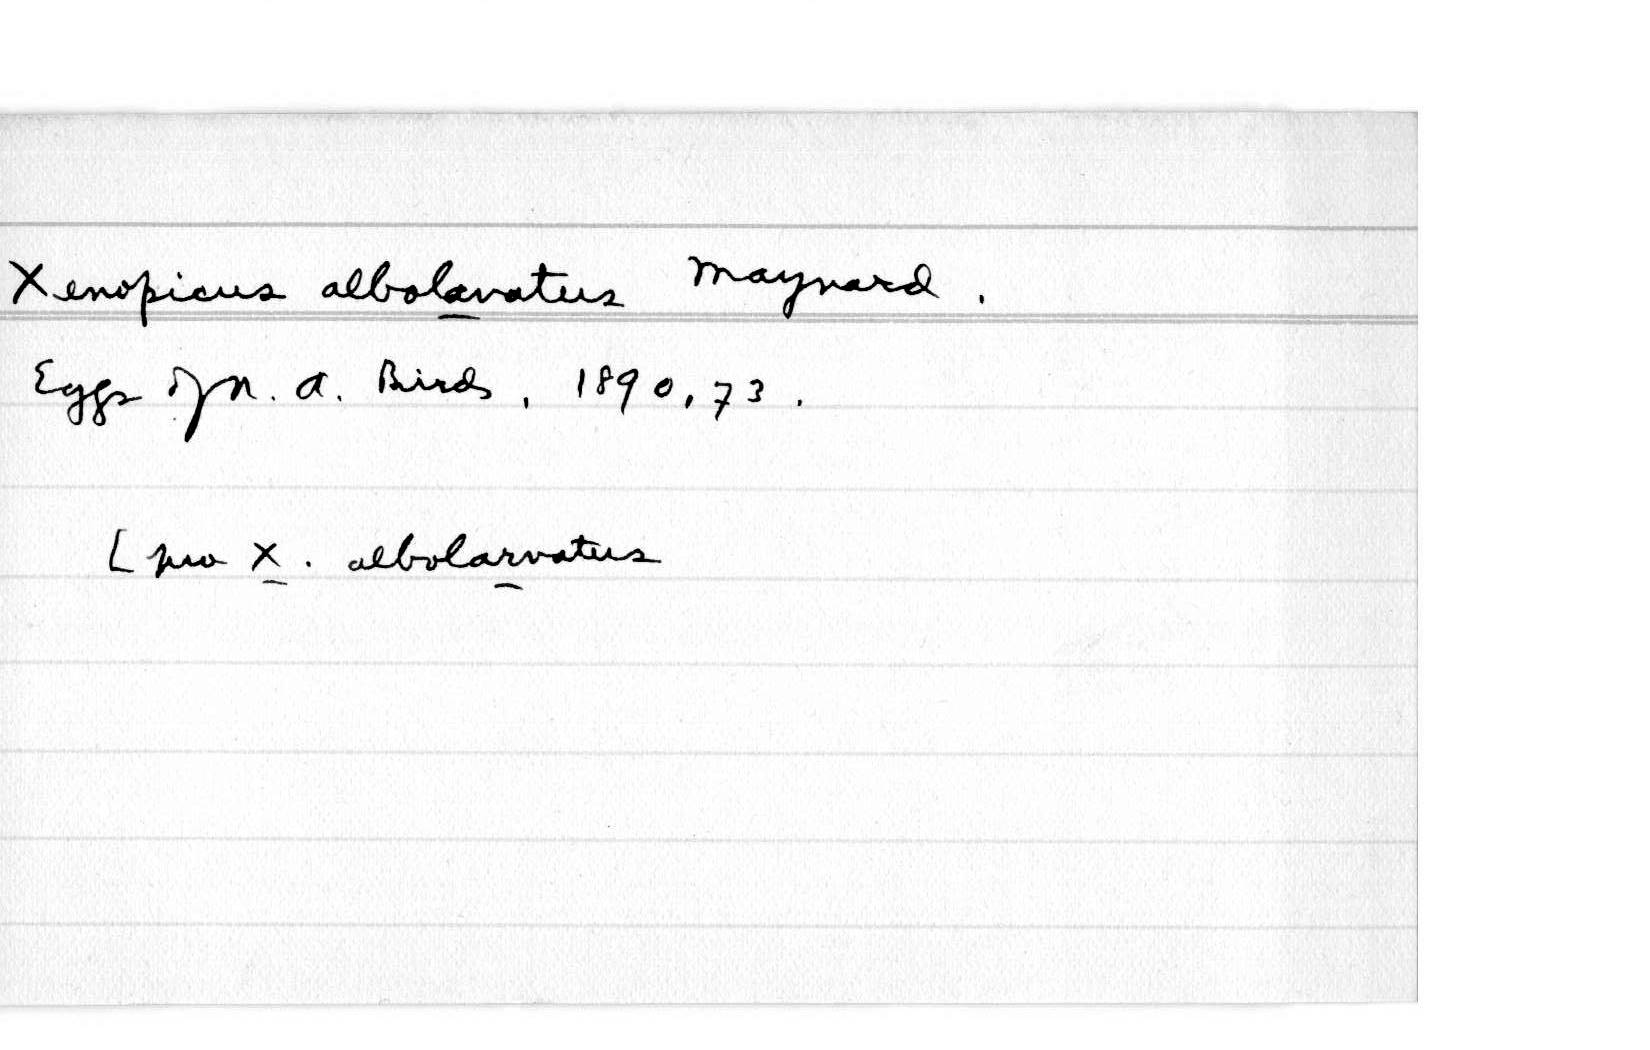 Xenopicus albolavatus Maynard.
Eggs of N. A. Birds, 1890, 73.
[ pro X. albolarvatus